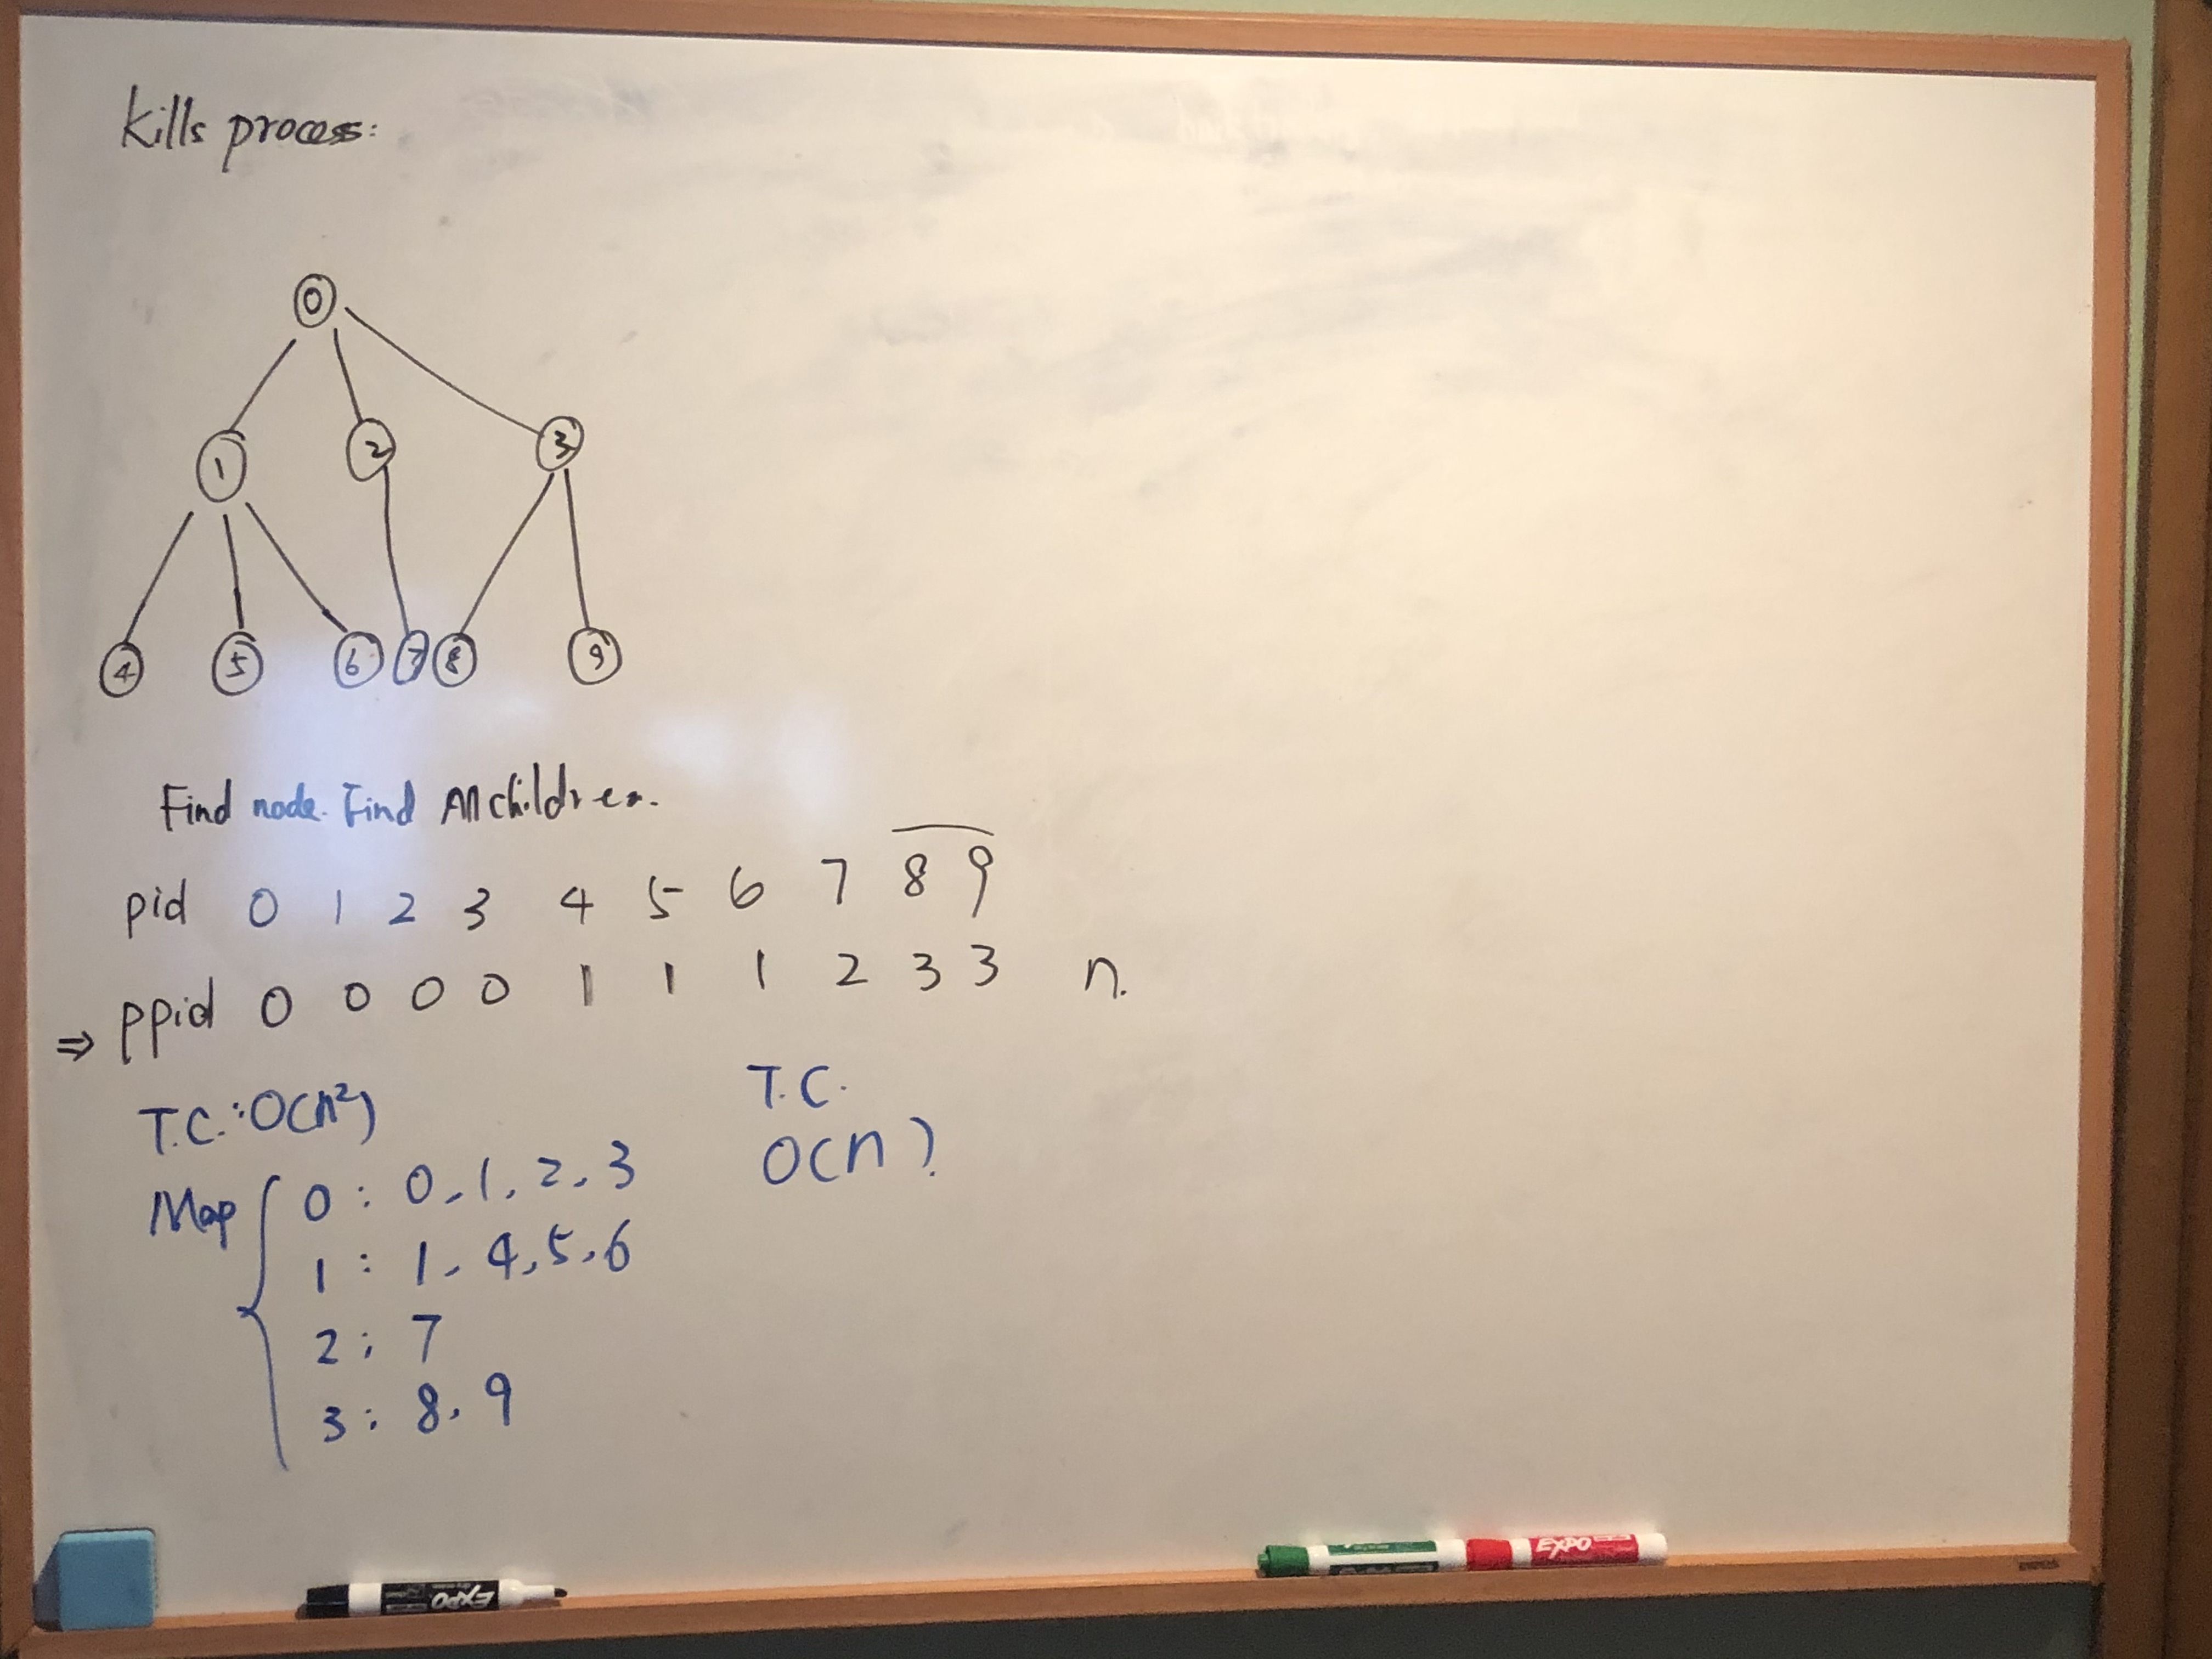 kills process:
0
1 2 3
4 5 6 7 8 9
Find node. Find All children.
pid 0 1 2 3 4 5 6 7 8 9
⇒ ppid 0 0 0 0 1 1 1 2 3 3 n.
T.C.: O(n²) T.C.
O(n)
Map { 0 : 0, 1, 2, 3
1 : 1, 4, 5, 6
2 : 7
3 : 8, 9
EXPO
EXPO